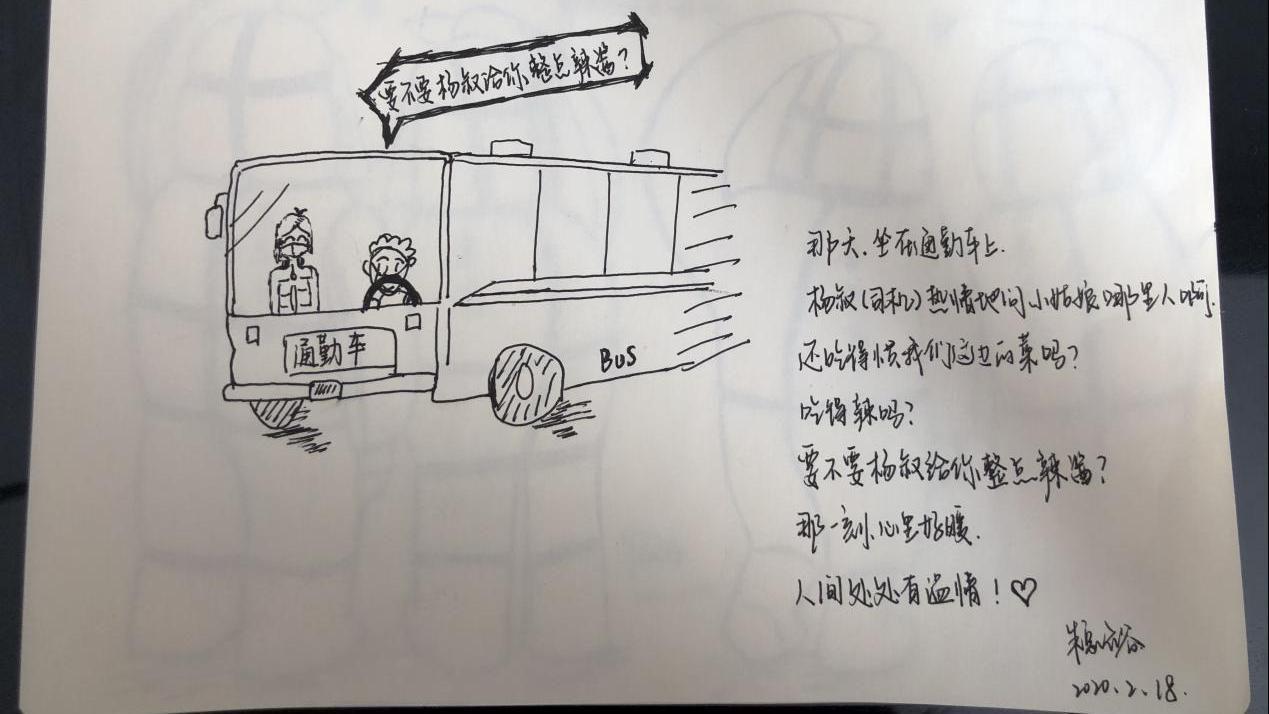 要不要杨叔给你整点辣酱?
通勤车
BUS
那天.坐在通勤车上.
杨叔(司机)热情地问小姑娘哪里人啊.
还吃得惯我们这边的菜吗?
吃得辣吗?
要不要杨叔给你整点辣酱?
那一刻.心里好暖.
人间处处有温情!♡
2020.2.18.